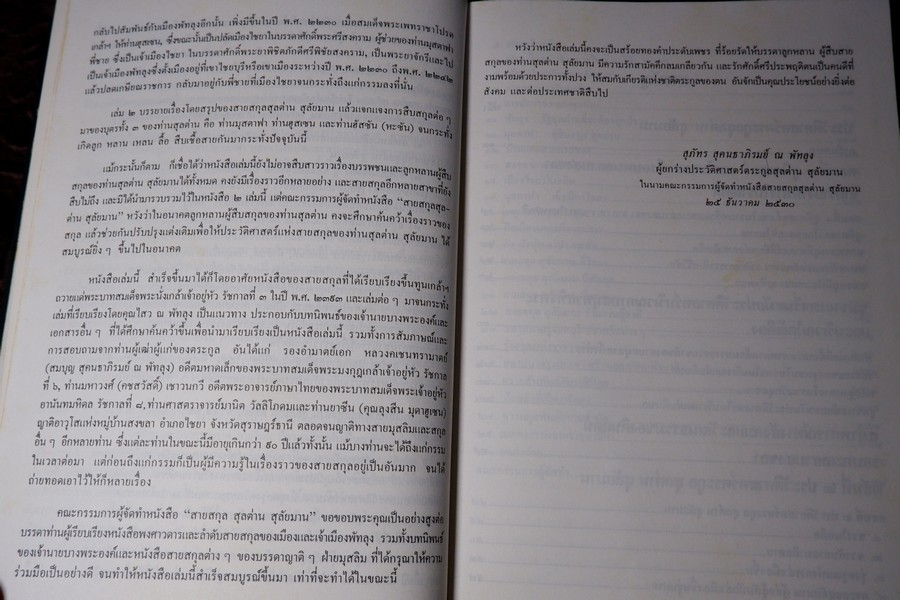 กลับไปสัมพันธ์กับเมืองพัทลุงอีกนั้น เพิ่งมีขึ้นในปี พ.ศ. ๒๒๓๐ เมื่อสมเด็จพระเพทราชาโปรด
เกล้าฯ ให้ท่านฮุสเซน, ซึ่งขณะนั้นเป็นปลัดเมืองไชยาในบรรดาศักดิ์พระศรีสงคราม ผู้ช่วยของท่านมุสตาฟา
พี่ชาย ซึ่งเป็นเจ้าเมืองไชยา ในบรรดาศักดิ์พระยาพิชิตภักดีศรีพิชัยสงคราม, เป็นพระยาจักรีและไป
เป็นเจ้าเมืองพัทลุงซึ่งตั้งเมืองอยู่ที่เขาไชยบุรีหรือเขาเมืองระหว่างปี พ.ศ. ๒๒๓๐ ถึงพ.ศ. ๒๒๔๒
แล้วปลดเกษียณราชการ กลับมาอยู่กับพี่ชายที่เมืองไชยาจนกระทั่งถึงแก่กรรมลงที่นั่น
เล่ม ๒ บรรยายเรื่องโดยสรุปของสายสกุลสุลต่าน สุลัยมาน แล้วแจกแจงการสืบสกุลต่อ ๆ
มาของบุตรทั้ง ๓ ของท่านสุลต่าน คือ ท่านมุสตาฟา ท่านฮุสเซน และท่านฮัสซัน (หะซัน) จนกระทั่ง
เกิดลูก หลาน เหลน ลื้อ สืบเชื้อสายกันมากระทั่งปัจจุบันนี้
แม้กระนั้นก็ตาม ก็เชื่อได้ว่าหนังสือเล่มนี้ยังไม่อาจสืบสาวราวเรื่องบรรพชนและลูกหลานผู้สืบ
สกุลของท่านสุลต่าน สุลัยมานได้ทั้งหมด คงยังมีเรื่องราวอีกหลายอย่าง และสายสกุลอีกหลายสาขาที่ยัง
สืบไม่ถึง และมิได้นำมารวบรวมไว้ในหนังสือ ๒ เล่มนี้ แต่คณะกรรมการผู้จัดทำหนังสือ “สายสกุลสุล-
ต่าน สุลัยมาน” หวังว่าในอนาคตลูกหลานผู้สืบสกุลของท่านสุลต่าน คงจะศึกษาค้นคว้าเรื่องราวของ
สกุล แล้วช่วยกันปรับปรุงแต่งเติมเพื่อให้ประวัติศาสตร์แห่งสายสกุลของท่านสุลต่าน สุลัยมาน ได้
สมบูรณ์ยิ่ง ๆ ขึ้นไปในอนาคต
หนังสือเล่มนี้ สำเร็จขึ้นมาได้ก็โดยอาศัยหนังสือของสายสกุลที่ได้เรียบเรียงขึ้นทูนเกล้าฯ
ถวายแด่พระบาทสมเด็จพระนั่งเกล้าเจ้าอยู่หัว รัชกาลที่ ๓ ในปี พ.ศ. ๒๓๙๓ และเล่มต่อ ๆ มาจนกระทั่ง
เล่มที่เรียบเรียงโดยคุณไสว ณ พัทลุง เป็นแนวทาง ประกอบกับบทนิพนธ์ของเจ้านายบางพระองค์และ
เอกสารอื่น ๆ ที่ได้ศึกษาค้นคว้าขึ้นเพื่อนำมาเรียบเรียงเป็นหนังสือเล่มนี้ รวมทั้งการสัมภาษณ์และ
การสอบถามจากท่านผู้เฒ่าผู้แก่ของตระกูล อันได้แก่ รองอำมาตย์เอก หลวงคเชนทรามาตย์
(สมบุญ สุคนธาภิรมย์ ณ พัทลุง) อดีตมหาดเล็กของพระบาทสมเด็จพระมงกุฎเกล้าเจ้าอยู่หัว รัชกาล
ที่ ๖, ท่านมหาวงศ์ (คชสวัสดิ์) เชาวนกวี อดีตพระอาจารย์ภาษาไทยของพระบาทสมเด็จพระเจ้าอยู่หัว
อานันทมหิดล รัชกาลที่ ๘, ท่านศาสตราจารย์มานิต วัลลิโภดมและท่านยาซีน (คุณลุงสีน มุดาฮูเซน)
ญาติอาวุโสแห่งหมู่บ้านสงขลา อำเภอไชยา จังหวัดสุราษฎร์ธานี ตลอดจนญาติทางสายมุสลิมและสกุล
อื่น ๆ อีกหลายท่าน ซึ่งแต่ละท่านในขณะนี้มีอายุเกินกว่า ๙๐ ปีแล้วทั้งนั้น แม้บางท่านจะได้ถึงแก่กรรม
ในเวลาต่อมา แต่ก่อนถึงแก่กรรมก็เป็นผู้มีความรู้ในเรื่องราวของสายสกุลอยู่เป็นอันมาก จนได้
ถ่ายทอดเอาไว้ให้ก็หลายเรื่อง
คณะกรรมการผู้จัดทำหนังสือ “สายสกุล สุลต่าน สุลัยมาน” ขอขอบพระคุณเป็นอย่างสูงต่อ
บรรดาท่านผู้เรียบเรียงหนังสือพงศาวดารและลำดับสายสกุลของเมืองและเจ้าเมืองพัทลุง รวมทั้งบทนิพนธ์
ของเจ้านายบางพระองค์และหนังสือสายสกุลต่าง ๆ ของบรรดาญาติ ๆ ฝ่ายมุสลิม ที่ได้กรุณาให้ความ
ร่วมมือเป็นอย่างดี จนทำให้หนังสือเล่มนี้สำเร็จสมบูรณ์ขึ้นมา เท่าที่จะทำได้ในขณะนี้
หวังว่าหนังสือเล่มนี้คงจะเป็นสร้อยทองคำประดับเพชร ที่ร้อยรัดให้บรรดาลูกหลาน ผู้สืบสาย
สกุลของท่านสุลต่าน สุลัยมาน มีความรักสามัคคีกลมเกลียวกัน และรักศักดิ์ศรีประพฤติตนเป็นคนดีที่
งามพร้อมด้วยประการทั้งปวง ให้สมกับเกียรติแห่งชาติตระกูลของตน อันจักเป็นคุณประโยชน์อย่างยิ่งต่อ
สังคม และต่อประเทศชาติสืบไป
สุภัทร สุคนธาภิรมย์ ณ พัทลุง
ผู้ยกร่างประวัติศาสตร์ตระกูลสุลต่าน สุลัยมาน
ในนามคณะกรรมการผู้จัดทำหนังสือสายสกุลสุลต่าน สุลัยมาน
๒๕ ธันวาคม ๒๕๓๐